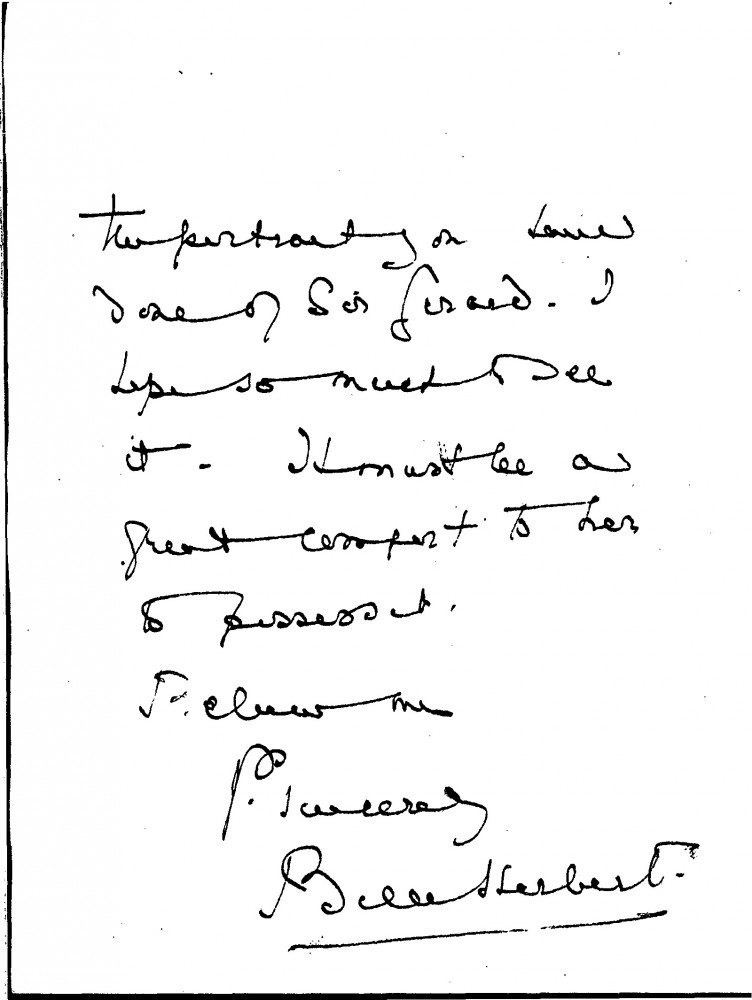 the portrait you have
done of Sir Gerard. I
hope so much to see
it. It must be a
great comfort to her
to possess it.
Believe me
Y. sincerely
Belle Herbert.